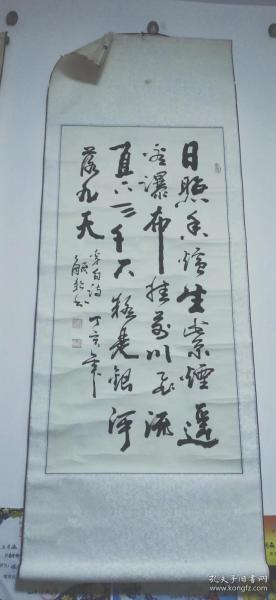 日照香炉生紫煙遥
看瀑布挂前川飛流
直下三千尺疑是銀河
落九天
李白詩 丁亥年
孔夫子旧书网
www.kongfz.com